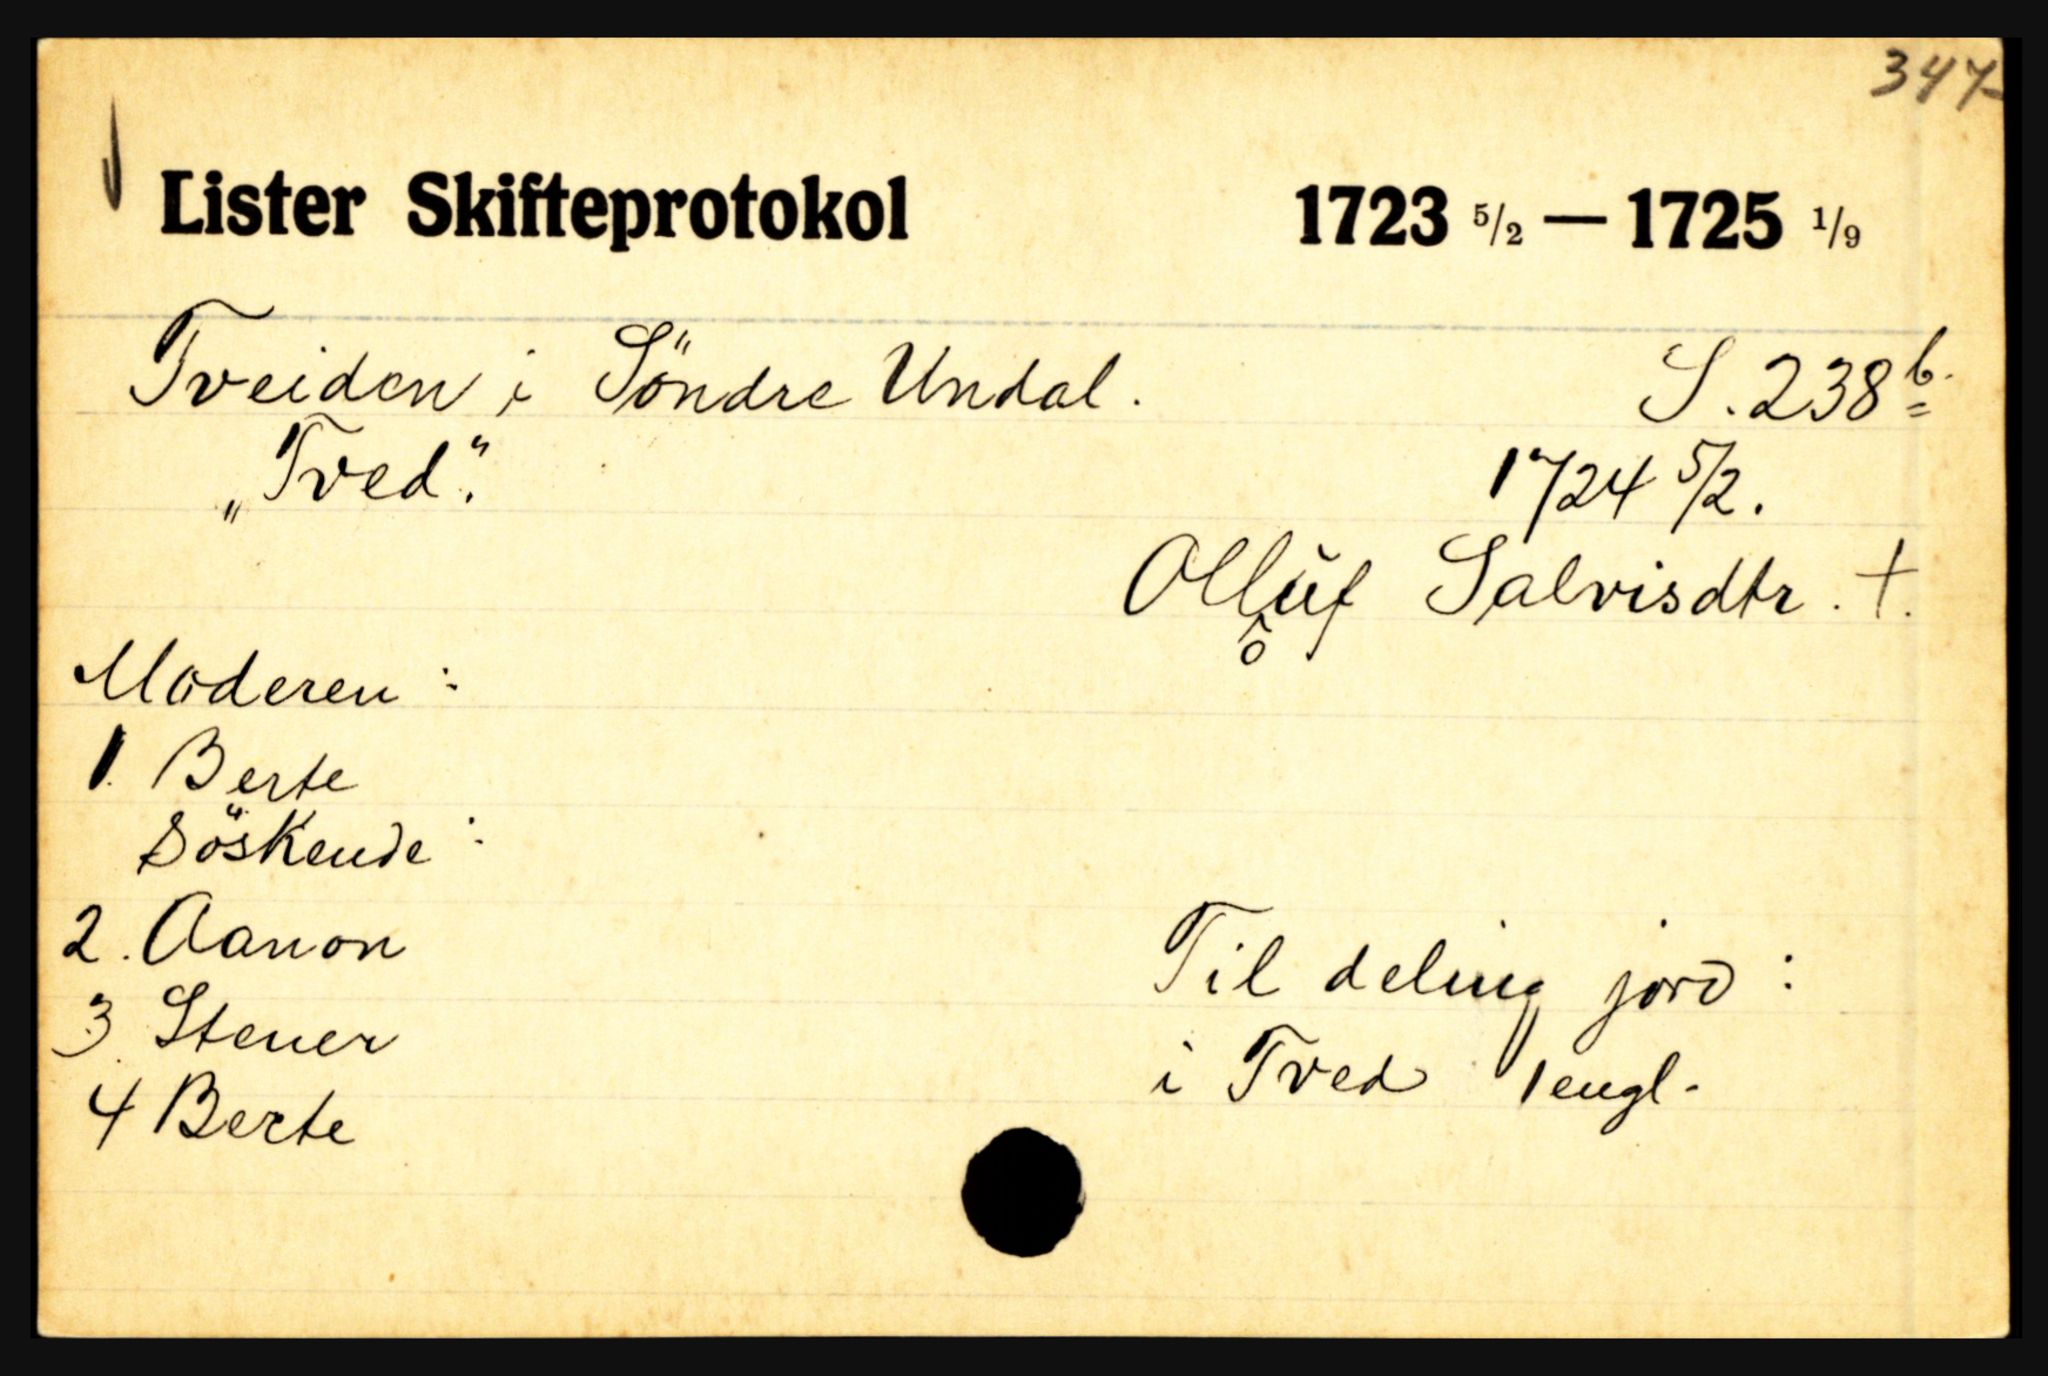 347-
Lister Skifteprotokol 1723 5/2 — 1725 1/9
Tveiden i Söndre Undal. S. 238 b.
„Tved". 1724 5/2.
Olluf Salvisdtr. †.
ö
Moderen:
1. Berte
Söskende:
2. Aanon
3. Stener
4 Berte
Til deling jord:
i Tved 1 engl-